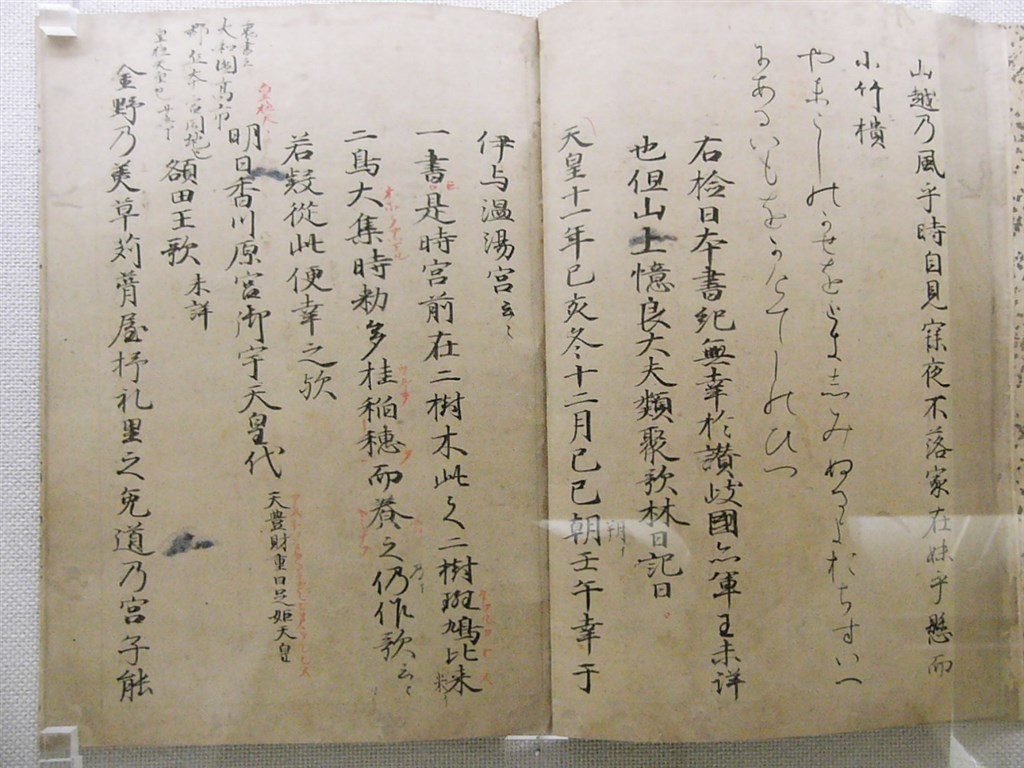 山越乃風乎時自見寐夜不落家在妹乎懸而
小竹樻
やまこしのかせをときしみぬるよおちすいへ
にあるいもをかけてしのひつ
右檢日本書紀無幸於讃岐國亦軍王未詳
也但山上憶良大夫類聚歌林曰記曰
天皇十一年己亥冬十二月己巳朝壬午幸于
伊与温湯宮云〻
一書是時宮前在二樹木此之二樹斑鳩比未
二鳥大集時勅多桂稲穂而養之仍作歌云〻
若疑從此便幸之欤
明日香川原宮御宇天皇代 天豊財重日足姫天皇
裏書云
大和國高市
額田王歌 未詳
金野乃美草苅葺屋杼礼里之兔道乃宮子能